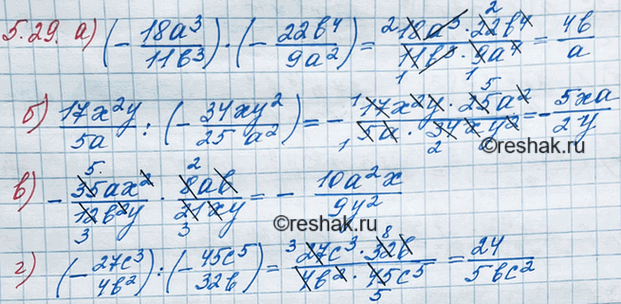 5.29. а) (-18a³/11b³)·(-22b⁴/9a²) = 18a³·22b⁴/11b³·9a⁴ = 4b/a
б) 17x²y/5a : (-34xy²/25a²) = -17x²y·25a²/5a·34xy² = -5xa/2y
reshak.ru
в) -35ax²/12b²y · 8ab/21xy = -10a²x/9y²
reshak.ru
г) (-27c³/4b²):(-45c⁵/32b) = 27c³·32b/4b²·45c⁵ = 24/5bc²